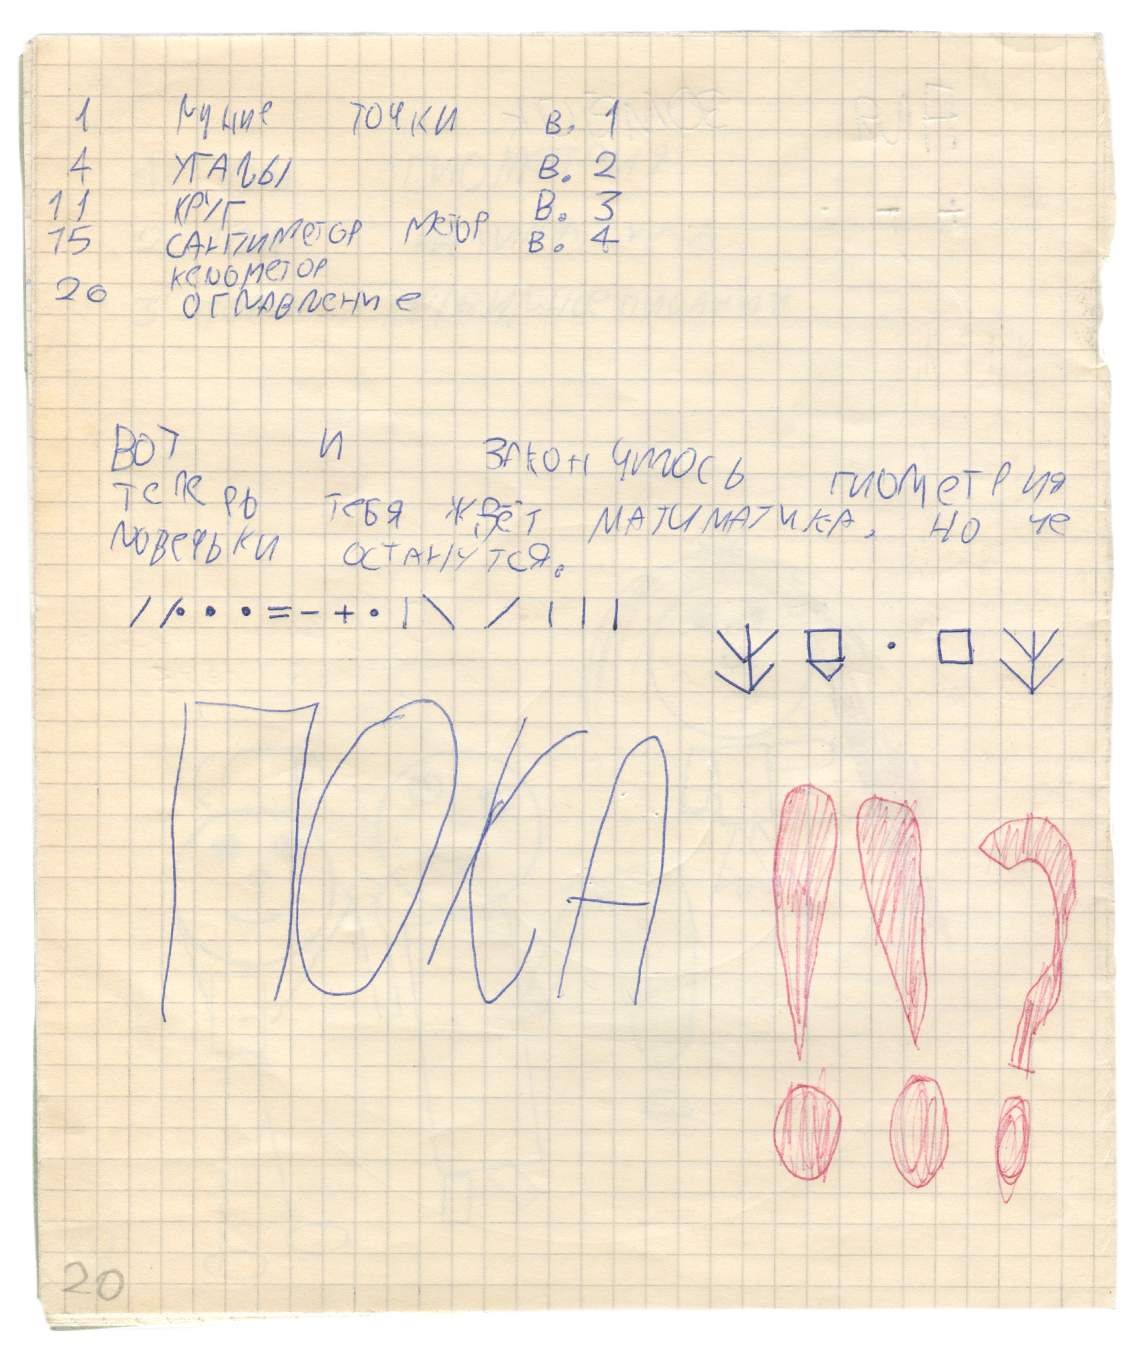 1 лушие точки в. 1
4 угалы в. 2
11 круг в. 3
15 сантиметор метор в. 4
келометор
20 оглавление
Вот и закончилось гиометрия
теперь тебя ждёт матиматика, но че
ловечьки останутся.
// • • • = - + • | \ / | | |
ПОКА
!!?
20